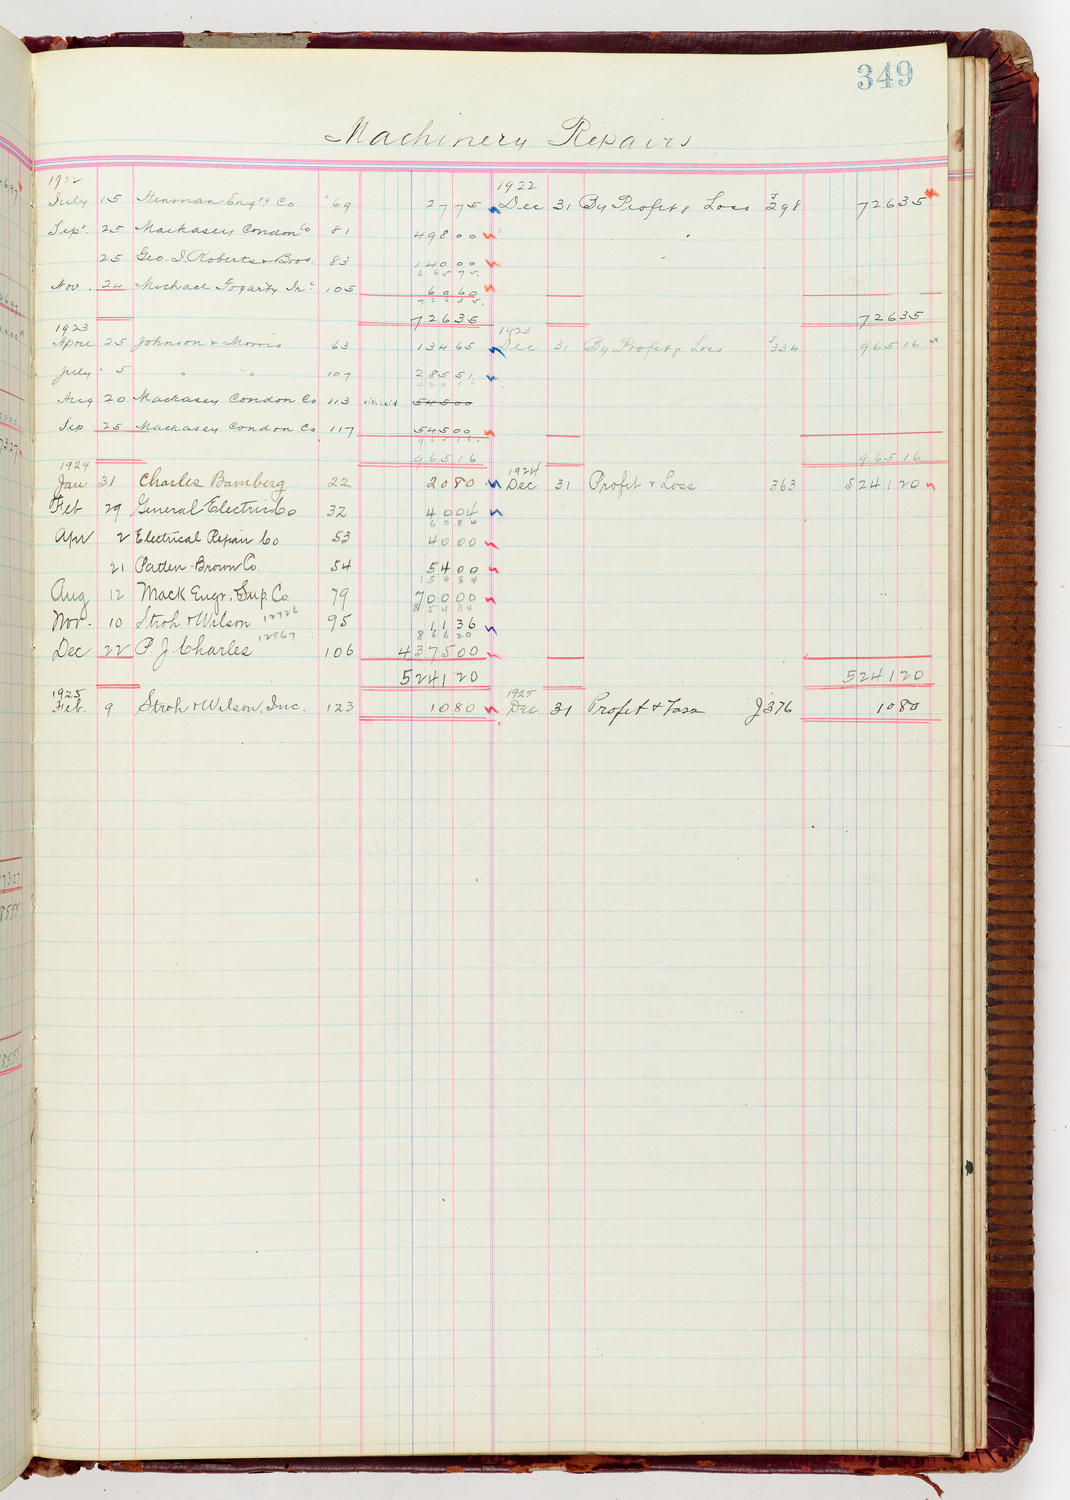 349
Machinery Repairs
1922 1922
July 15 Hinman Eng'g Co 69 27 75 Dec 31 By Profit & Loss J 298 726 35
Sept. 25 Mackasey Condon Co 81 498 00
25 Geo. I. Roberts & Bros. 83 140 00
665 75
Nov. 24 Michael Fogarty Inc 105 60 60
726 35
726 35 726 35
1923 1923
April 25 Johnson & Morris 63 134 65 Dec 31 By Profit & Loss J 334 965 16
July 5 " " 107 285 51
420 16
Aug 20 Mackasey Condon Co 113 545 00
Sep 25 Mackasey Condon Co 117 545 00
965 16
965 16 965 16
1924 1924
Jan 31 Charles Bamberg 22 20 80 Dec. 31 Profit & Loss 363 5241 20
Feb 29 General Electric Co 32 40 04
60 84
Apr 2 Electrical Repair Co 53 40 00
21 Patten-Brown Co. 54 54 00
154 84
Aug 12 Mack Engr. & Sup. Co. 79 700 00
854 84
Nov. 10 Stroh & Wilson 12926 95 11 36
866 20
Dec 22 P. J. Charles 12967 106 4375 00
5241 20 5241 20
1925 1925
Feb. 9 Stroh & Wilson, Inc. 123 10 80 Dec 31 Profit & Loss J 376 10 80